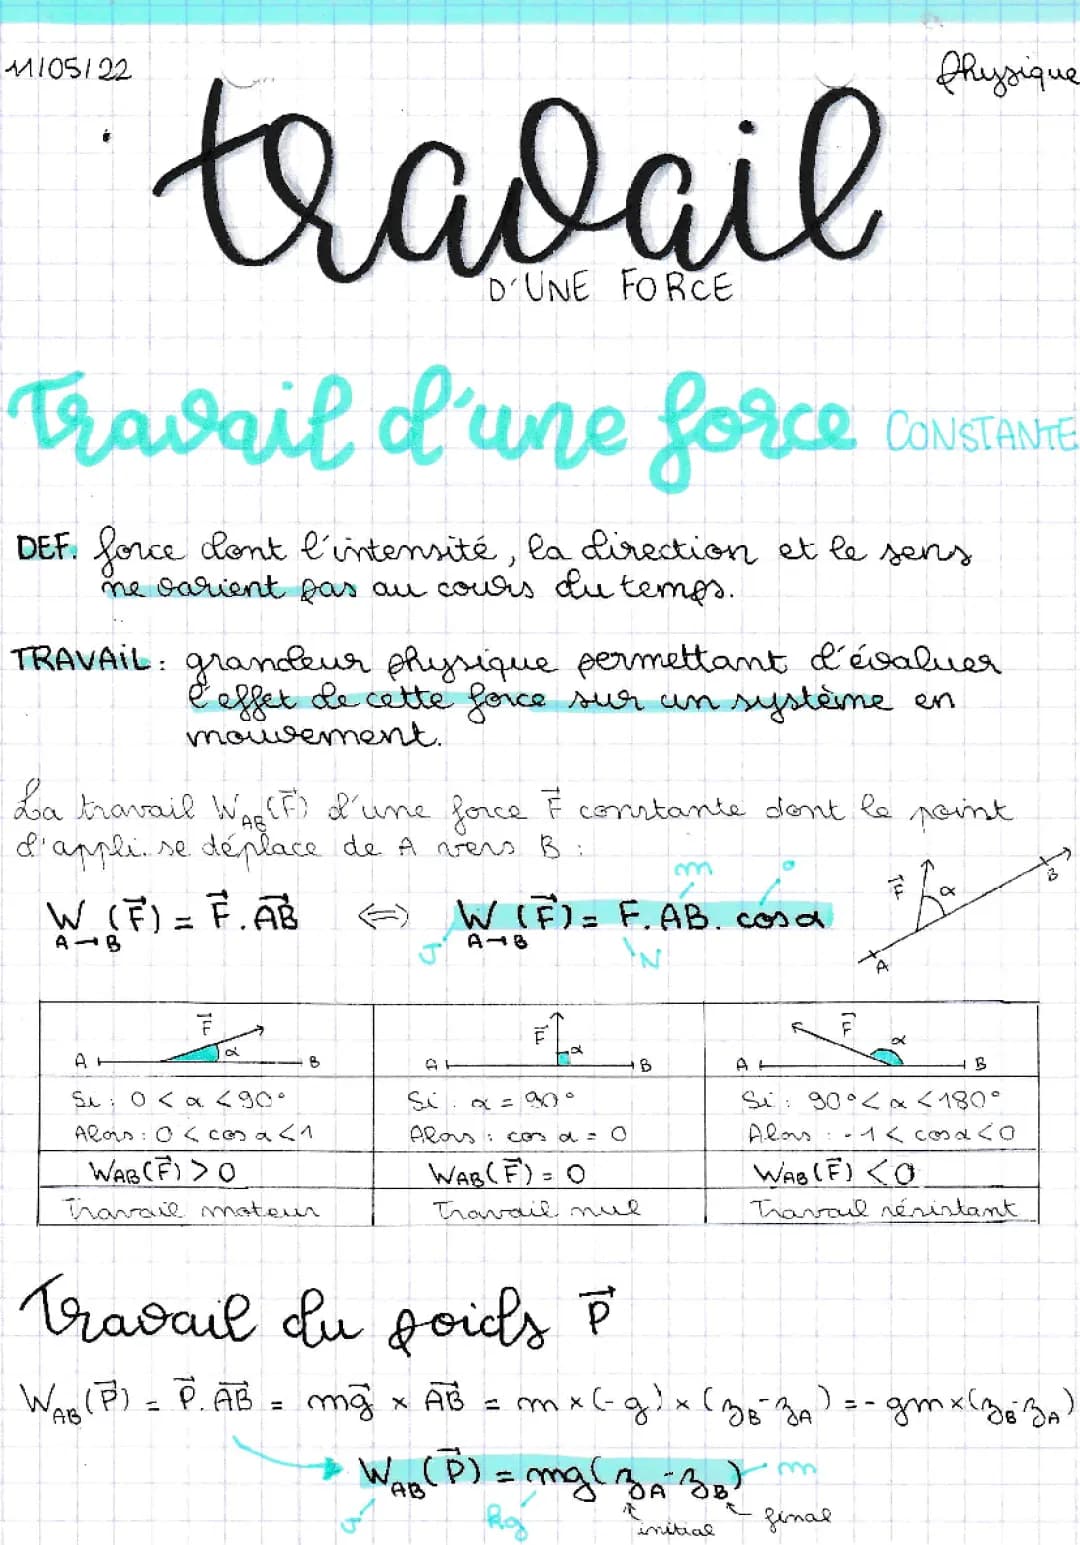 11/05/22
Physique
travail
D'UNE FORCE
Travail d'une force CONSTANTE
DEF. force dont l'intensité, la direction et le sens
ne varient pas au cours du temps.
TRAVAIL : grandeur physique permettant d'évaluer
l'effet de cette force sur un système en
mouvement.
La travail W_AB(F⃗) d'une force F⃗ constante dont le point
d'appli. se déplace de A vers B :
W_A→B (F⃗) = F⃗.AB⃗ ⇔ W_A→B (F⃗) = F.AB.cos α
J N m °
A F⃗ α B
A F⃗ α B
A F⃗ α B
A F⃗ α B
Si : 0 < α < 90°
Alors : 0 < cos α < 1
W_AB(F⃗) > 0
Travail moteur
Si : α = 90°
Alors : cos α = 0
W_AB(F⃗) = 0
Travail nul
Si : 90° < α < 180°
Alors : -1 < cos α < 0
W_AB(F⃗) < 0
Travail résistant
Travail du poids P⃗
W_AB(P⃗) = P⃗.AB⃗ = mg⃗ × AB⃗ = m × (-g) × (z_B - z_A) = - gm × (z_B - z_A)
W_AB(P⃗) = mg(z_A - z_B)
J kg m
initial final